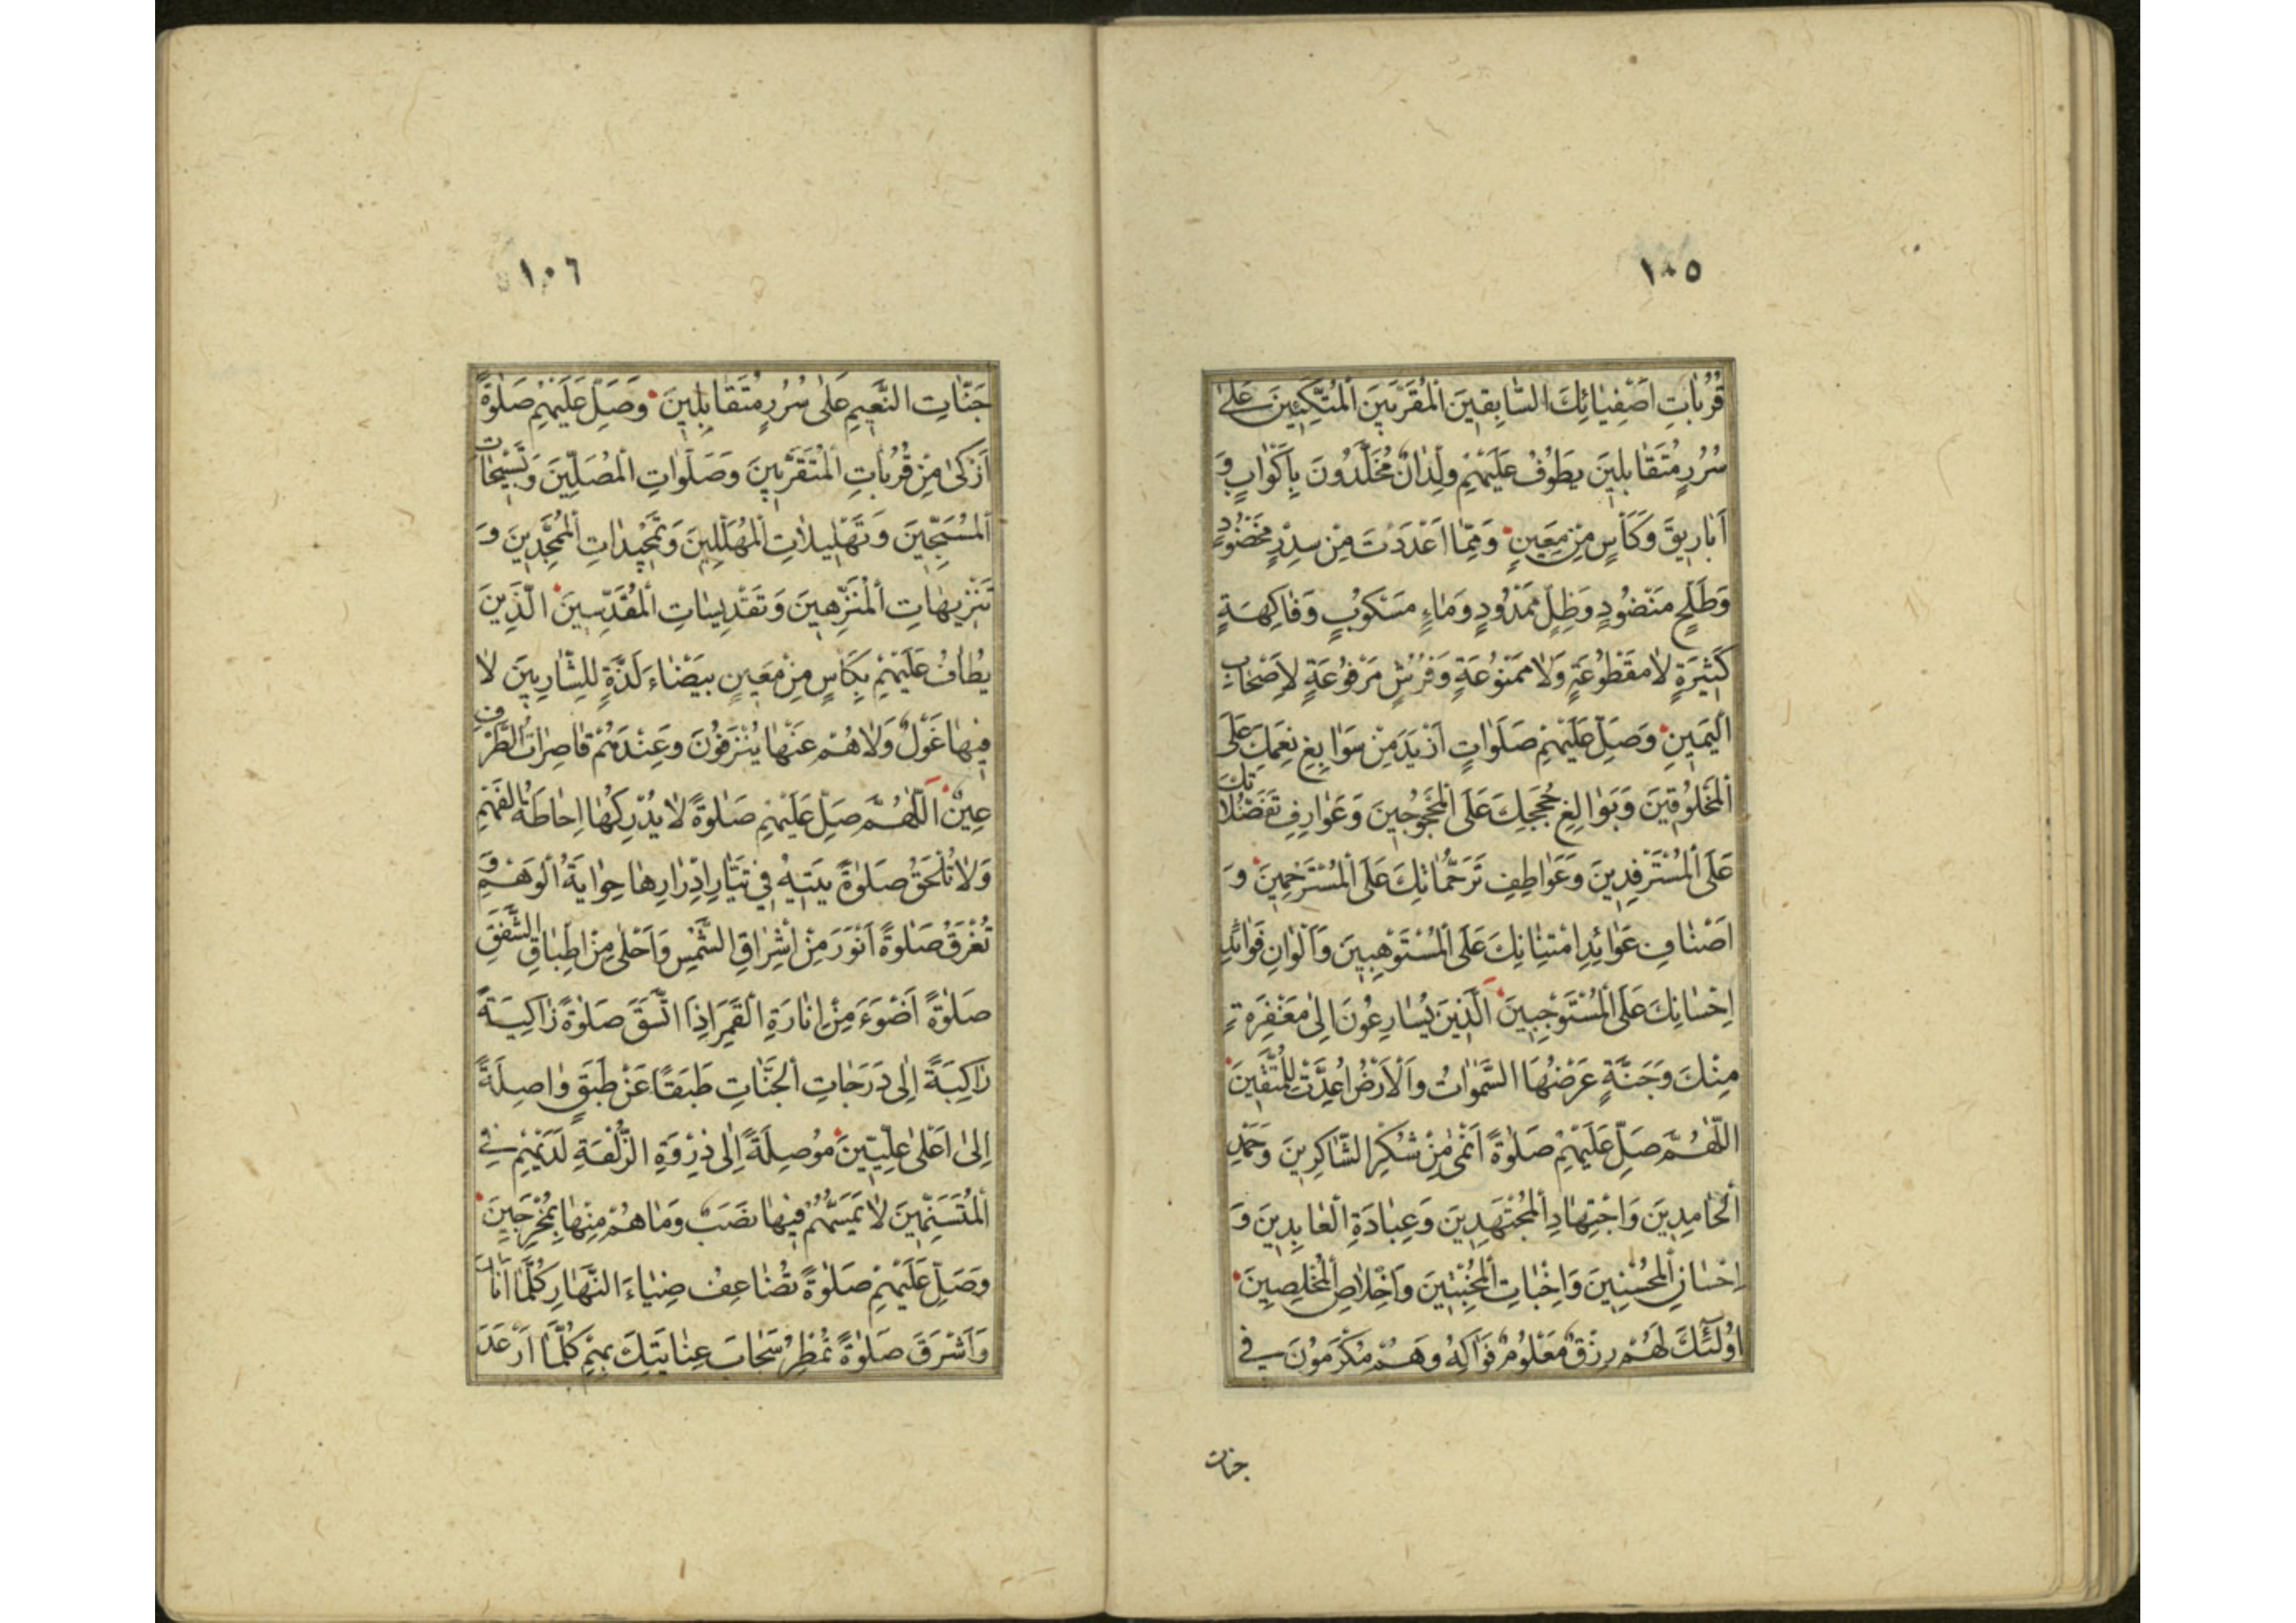 ١٠٥
قُرُبَاتِ اَصْفِيَائِكَ السَّابِقِينَ الْمُقَرَّبِينَ الْمُتَّكِئِينَ عَلَى
سُرُرٍ مُتَقَابِلِينَ يَطُوفُ عَلَيْهِمْ وِلْدَانٌ مُخَلَّدُونَ بِاَكْوَابٍ وَ
اَبَارِيقَ وَكَأْسٍ مِنْ مَعِينٍ وَمِمَّا اَعْدَدْتَ مِنْ سِدْرٍ مَخْضُودٍ
وَطَلْحٍ مَنْضُودٍ وَظِلٍّ مَمْدُودٍ وَمَاءٍ مَسْكُوبٍ وَفَاكِهَةٍ
كَثِيرَةٍ لَا مَقْطُوعَةٍ وَلَا مَمْنُوعَةٍ وَفُرُشٍ مَرْفُوعَةٍ لِاَصْحَابِ
الْيَمِينِ وَصَلِّ عَلَيْهِمْ صَلَوَاتٍ اَزْيَدَ مِنْ سَوَابِغِ نِعَمِكَ عَلَى
الْمَخْلُوقِينَ وَبَوَالِغِ حُجَجِكَ عَلَى الْمَحْجُوجِينَ وَعَوَارِفِ تَفَضُّلَاتِكَ
عَلَى الْمُسْتَرْفِدِينَ وَعَوَاطِفِ تَرَحُّمَاتِكَ عَلَى الْمُسْتَرْحِمِينَ وَ
اَصْنَافِ عَوَائِدِ امْتِنَانِكَ عَلَى الْمُسْتَوْهِبِينَ وَاَلْوَانِ فَوَائِدِ
اِحْسَانِكَ عَلَى الْمُسْتَوْجِبِينَ اَلَّذِينَ يُسَارِعُونَ اِلَى مَغْفِرَةٍ
مِنْكَ وَجَنَّةٍ عَرْضُهَا السَّمَوَاتُ وَالْاَرْضُ اُعِدَّتْ لِلْمُتَّقِينَ
اللّٰهُمَّ صَلِّ عَلَيْهِمْ صَلٰوةً اَنْمَى مِنْ شُكْرِ الشَّاكِرِينَ وَحَمْدِ
الْحَامِدِينَ وَاجْتِهَادِ الْمُجْتَهِدِينَ وَعِبَادَةِ الْعَابِدِينَ وَ
اِحْسَانِ الْمُحْسِنِينَ وَاِخْبَاتِ الْمُخْبِتِينَ وَاِخْلَاصِ الْمُخْلِصِينَ
اُولٰئِكَ لَهُمْ رِزْقٌ مَعْلُومٌ فَوَاكِهُ وَهُمْ مُكْرَمُونَ فِي
جنات
١٠٦
جَنَّاتِ النَّعِيمِ عَلَى سُرُرٍ مُتَقَابِلِينَ وَصَلِّ عَلَيْهِمْ صَلٰوةً
اَزْكَى مِنْ قُرُبَاتِ الْمُتَقَرِّبِينَ وَصَلَوَاتِ الْمُصَلِّينَ وَتَسْبِيحَاتِ
الْمُسَبِّحِينَ وَتَهْلِيلَاتِ الْمُهَلِّلِينَ وَتَمْجِيدَاتِ الْمُمَجِّدِينَ وَ
تَنْزِيهَاتِ الْمُنَزِّهِينَ وَتَقْدِيسَاتِ الْمُقَدِّسِينَ الَّذِينَ
يُطَافُ عَلَيْهِمْ بِكَأْسٍ مِنْ مَعِينٍ بَيْضَاءَ لَذَّةٍ لِلشَّارِبِينَ لَا
فِيهَا غَوْلٌ وَلَا هُمْ عَنْهَا يُنْزَفُونَ وَعِنْدَهُمْ قَاصِرَاتُ الطَّرْفِ
عِينٌ اَللّٰهُمَّ صَلِّ عَلَيْهِمْ صَلٰوةً لَا يُدْرِكُهَا اِحَاطَةُ الْفَهْمِ
وَلَا تُلْحَقُ صَلٰوةً يَتِيهُ فِي تَيَّارِ اِدْرَارِهَا حِوَايَةُ الْوَهْمِ وَ
تُغْرَقُ صَلٰوةً اَنْوَرَ مِنْ اِشْرَاقِ الشَّمْسِ وَاَحْلَى مِنْ اِطْبَاقِ الشَّفَقِ
صَلٰوةً اَضْوَءَ مِنْ اِنَارَةِ الْقَمَرِ اِذَا اتَّسَقَ صَلٰوةً زَاكِيَةً
رَاكِبَةً اِلَى دَرَجَاتِ الْجَنَّاتِ طَبَقًا عَنْ طَبَقٍ وَاصِلَةً
اِلَى اَعْلَى عِلِّيِّينَ مُوصِلَةً اِلَى ذِرْوَةِ الزُّلْفَةِ لَدَيْهِمْ فِي
الْمُتَسَنِّمِينَ لَا يَمَسُّهُمْ فِيهَا نَصَبٌ وَمَا هُمْ مِنْهَا بِمُخْرَجِينَ
وَصَلِّ عَلَيْهِمْ صَلٰوةً تُضَاعِفُ ضِيَاءَ النَّهَارِ كُلَّمَا اَنَارَ
وَاَشْرَقَ صَلٰوةً تُمْطِرُ سَحَابَ عِنَايَتِكَ بِهِمْ كُلَّمَا اَرْعَدَ